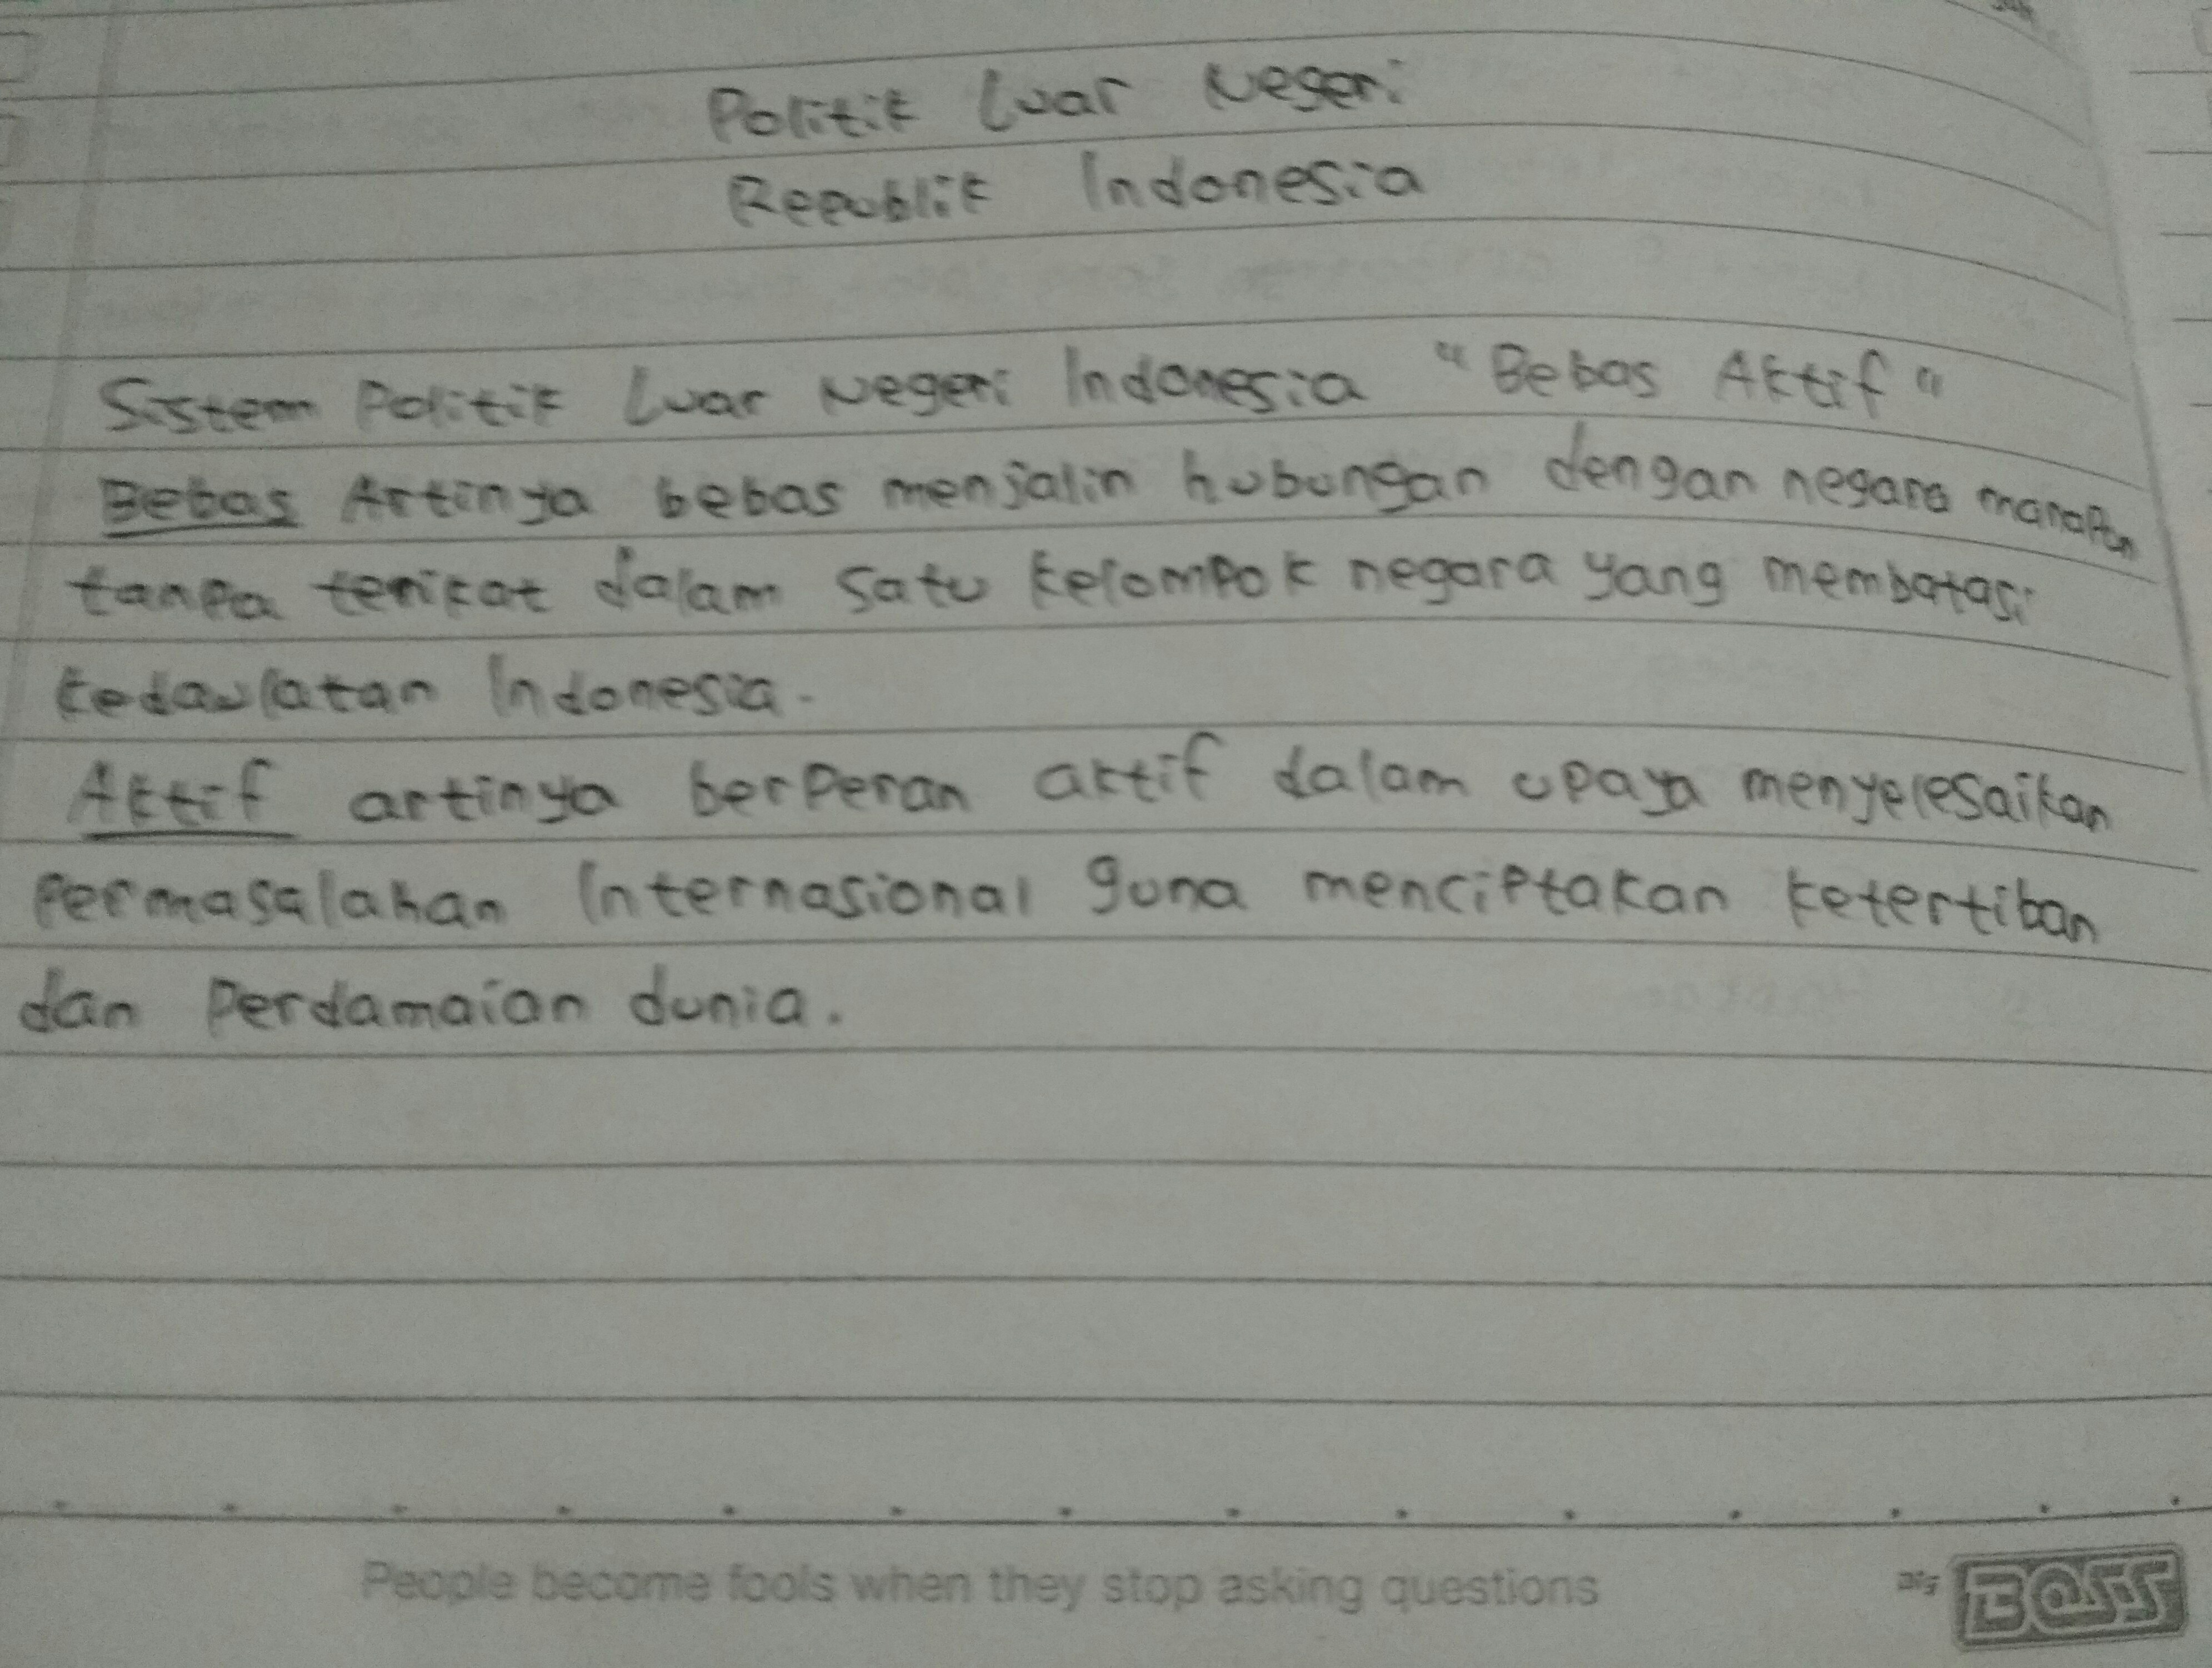 Politik Luar Negeri
Republik Indonesia
Sistem Politik Luar Negeri Indonesia "Bebas Aktif"
Bebas Artinya bebas menjalin hubungan dengan negara manapun
tanpa terikat dalam satu kelompok negara yang membatasi
kedaulatan Indonesia.
Aktif artinya berperan aktif dalam upaya menyelesaikan
Permasalahan Internasional guna menciptakan ketertiban
dan Perdamaian dunia.
People become fools when they stop asking questions
BIG BOSS